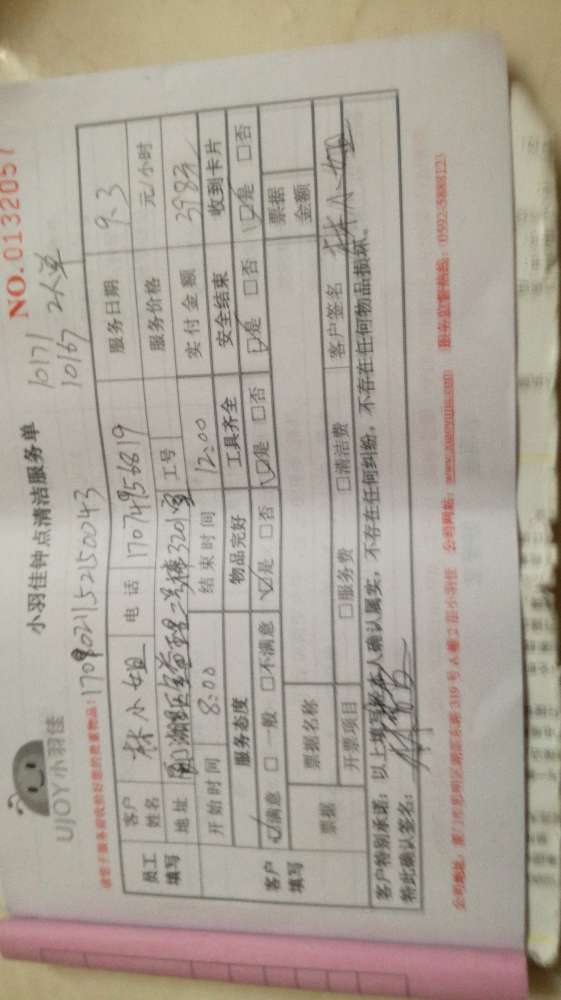 UJOY小羽佳
小羽佳钟点清洁服务单
NO.0132057
10171
10167 2人单
1709021152150043
员工填写 客户姓名 林小姐 电话 17074956819 服务日期 9.3
地址 3201室 工号 服务价格 元/小时
开始时间 8:00 结束时间 12:00 实付金额 398元
客户填写 服务态度 物品完好 工具齐全 安全结束 收到卡片
☑满意 □一般 □不满意 ☑是 □否 ☑是 □否 ☑是 □否 ☑是 □否
票据 票据名称 票据金额
开票项目 □服务费 □清洁费 客户签名 林小姐
客户特别承诺:以上填写经本人确认属实,不存在任何纠纷,不存在任何物品损坏。
特此确认签名:
公司地址:厦门市思明区湖滨东路319号A幢2层小羽佳 公司网址: 服务监督热线:0592-5888123